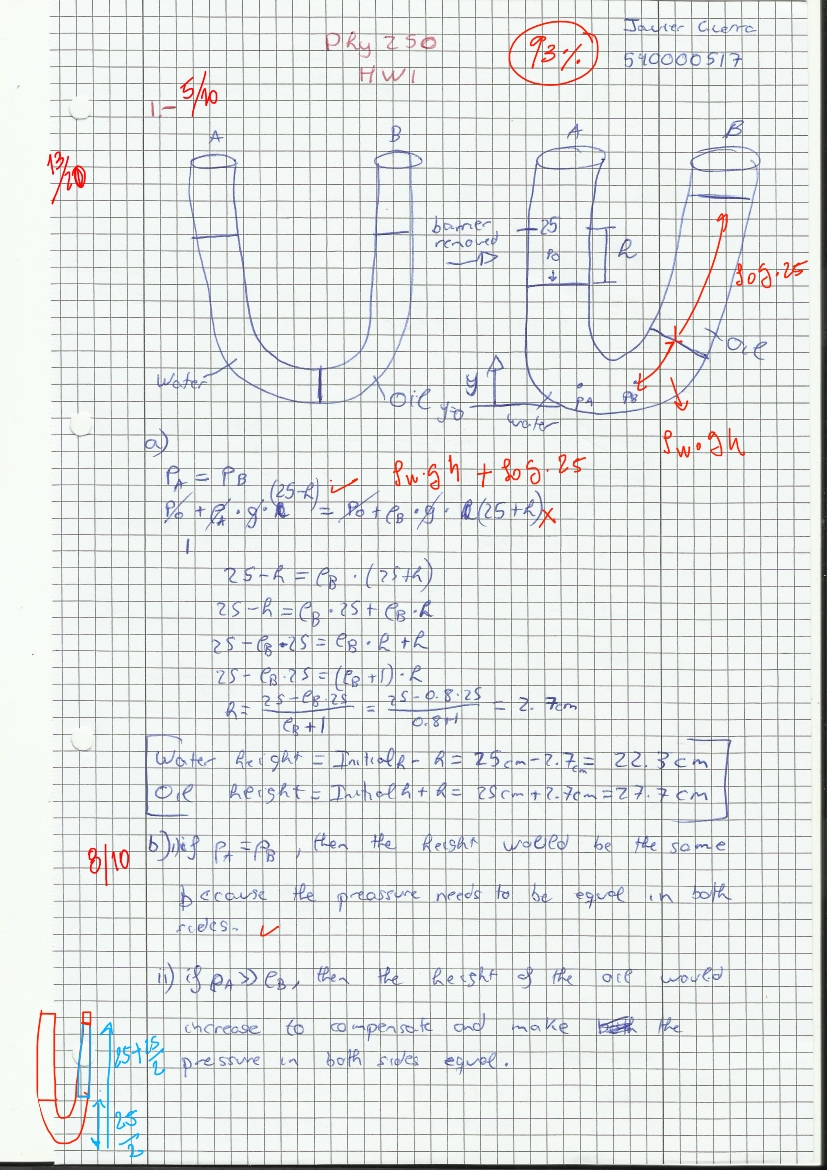 Phy 250
HW1
93%
Javier Guerra
590000517
1.- 5/10
13/20
A
B
A
B
barrier
removed
25
P0
h
ρog·25
Water
Oil
y
y=0
water
PA
PB
Oil
ρw·gh
a)
PA = PB
ρw·gh + ρog·25
P0 + ρA·g·(25-h) = P0 + ρB·g·(25+h)
1
25-h = ρB·(25+h)
25-h = ρB·25 + ρB·h
25-ρB·25 = ρB·h + h
25-ρB·25 = (ρB+1)·h
h = (25-ρB·25)/(ρB+1) = (25-0.8·25)/(0.8+1) = 2.7cm
Water height = Initial h - h = 25cm-2.7cm = 22.3cm
Oil height = Initial h + h = 25cm+2.7cm = 27.7cm
8/10
b) i) if ρA = ρB, then the height would be the same
because the preassure needs to be equal in both
sides.
ii) if ρA >> ρB, then the height of the oil would
increase to compensate and make the
pressure in both sides equal.
25+25/2
25/2